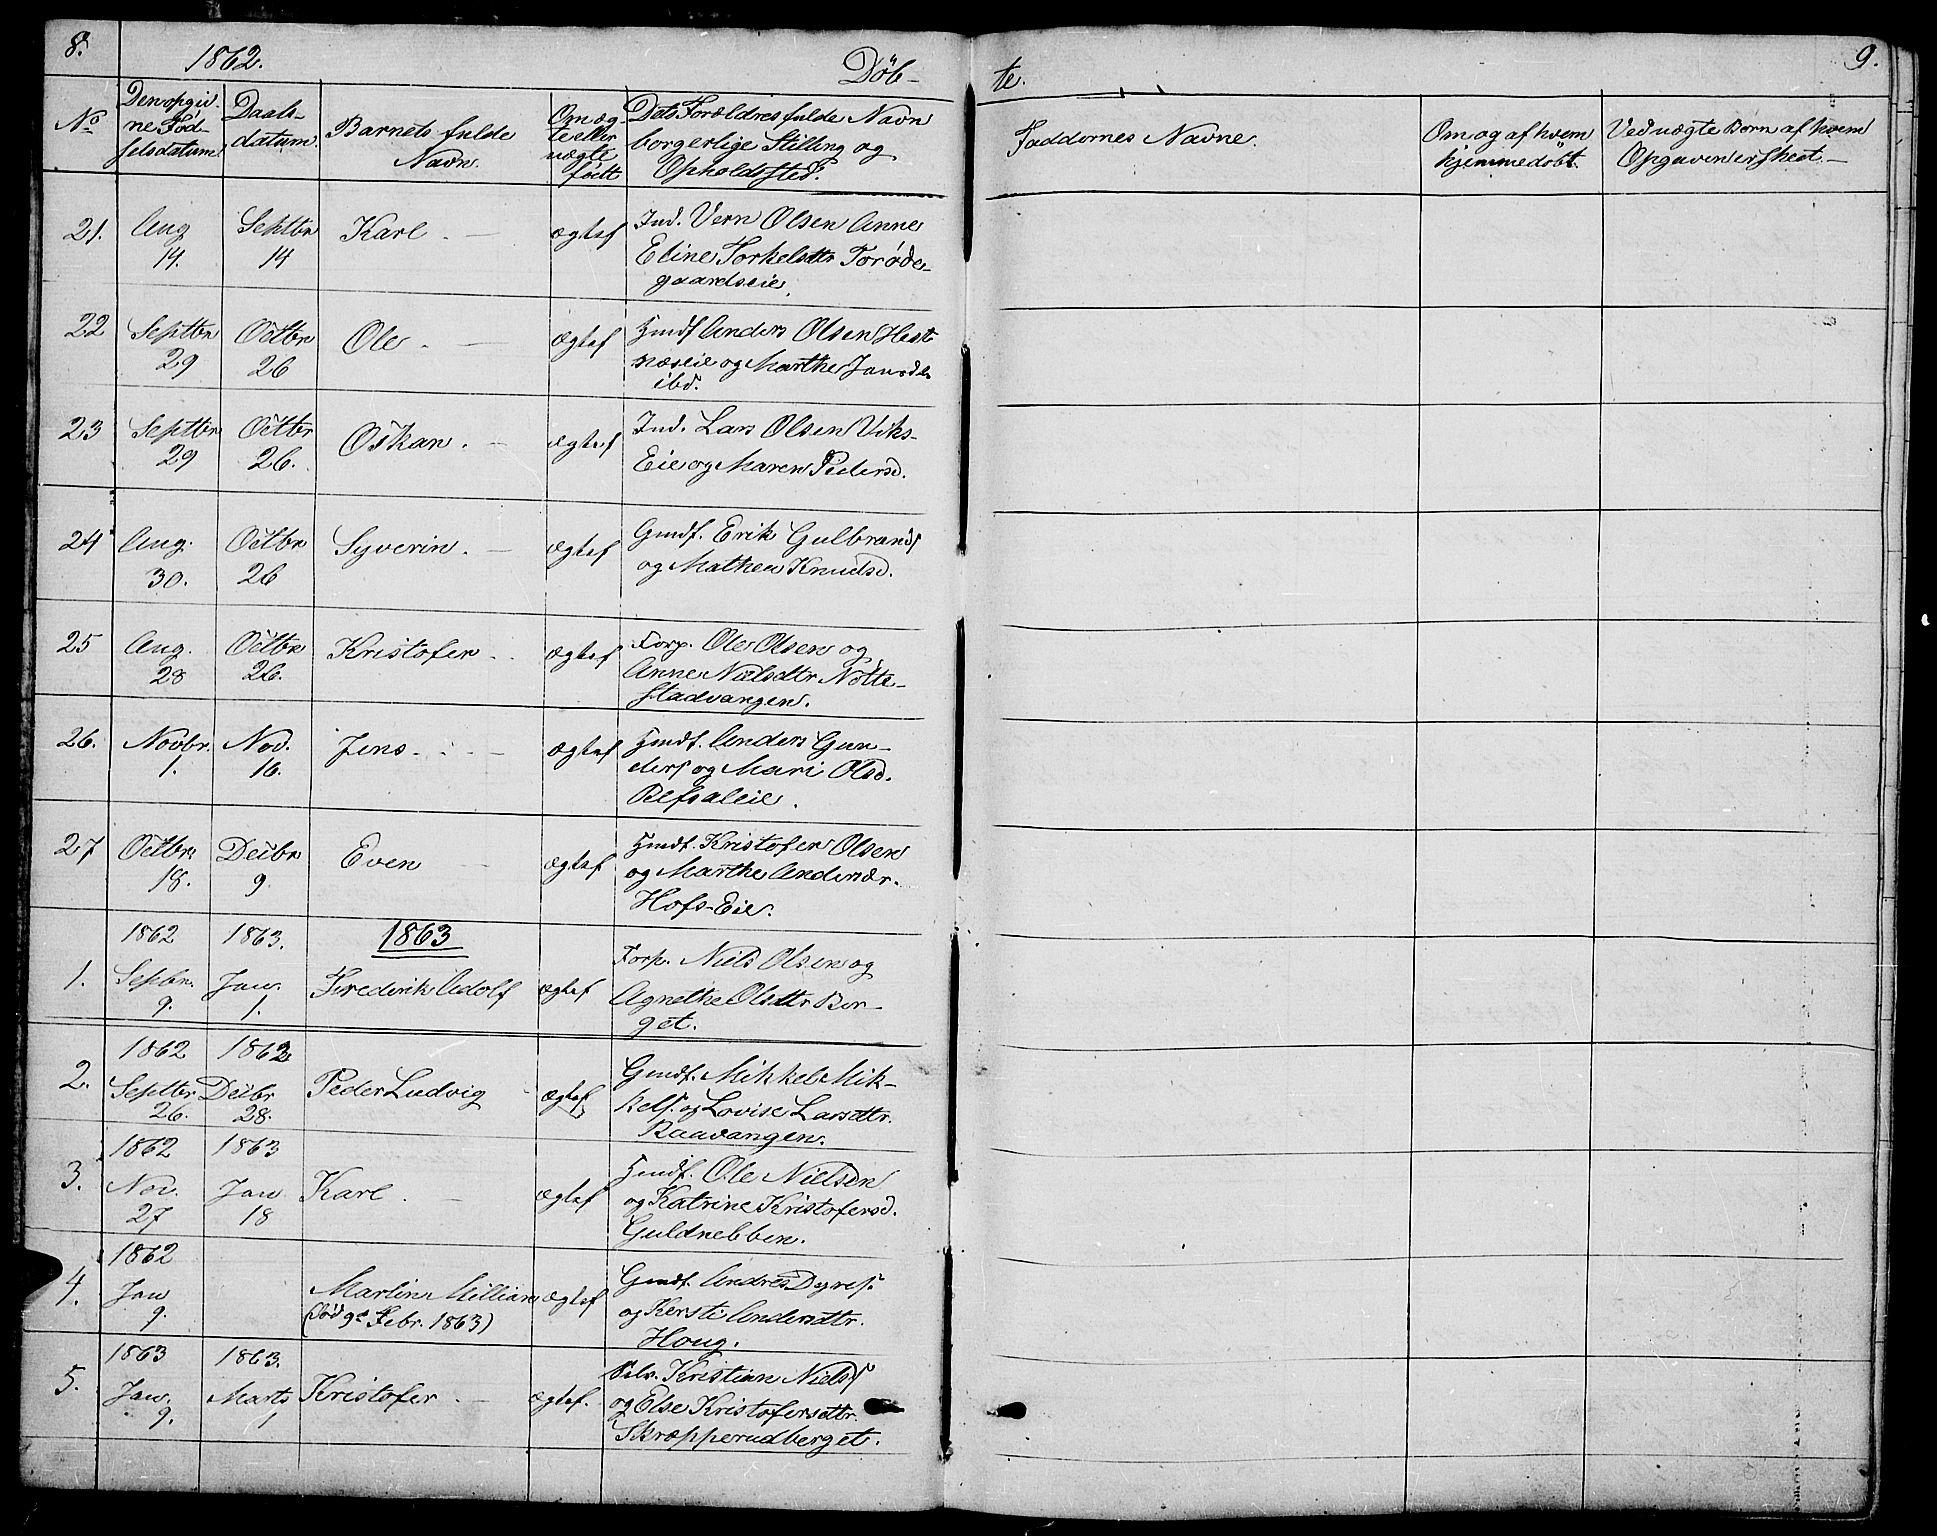 8.
1862.
Döb-
te.
9.
No
Den opgiv-
ne Fød-
selsdatum
Daabs-
datum
Barnets fulde
Navn.
Om æg-
te eller
uægte
født
Dets Forældres fulde Navn
borgerlige Stilling og
Opholdssted.
Faddernes Navne.
Om og af hvem
hjemmedöbt.
Ved uægte Børn af hvem
Opgaven er skeet.
21. Aug 14. Septbr 14 Karl. ægtef Ind. Vern Olsen Anne
Eline Torkelsdtr Torøde-
gaardseie.
22 Septbr 29 Octbr 26 Ole. ægtef Hmdf Anders Olsen Hest
næseie og Marthe Jansdr
ibd.
23 Septbr 29 Octbr 26. Oskar. ægtef Ind. Lars Olsen Viks-
Eie og Maren Pedersd.
24 Aug. 30. Octbr 26 Syverin. ægtef Gmdf. Erik Gulbrands
og Mathea Knudsd.
25 Aug. 28 Octbr 26. Kristofer. ægtef Forp. Ole Olsen og
Anne Nielsdtr Nøtte-
stadvangen.
26. Novbr. 1. Nov. 16. Jens. ægtef Hmdf. Anders Gun-
ders og Mari Olsd.
Refsaleie.
27 Octbr. 18. Decbr 9. Even ægtef Hmdf. Kristofer Olsen
og Marthe Andersdr.
Hofs-Eie.
1862 1863. 1863
1. Sepbr. 9. Jan. 1. Frederik Adolf ægtef Forp. Niels Olsen og
Agnethe Olsdtr Ber-
get.
1862 1862
2. Septbr 26. Decbr 28. Peder Ludvig ægtef Gmdf. Mikkel Mik-
kels. og Lovise Larsdtr.
Raavangen.
1862 1863
3. Nov. 27 Jan 18 Karl. ægtef Hmdf. Ole Nielsen
og Katrine Kristofersd.
Guldnebben.
1862
4. Jan 9. Martin Millian ægtef Gmdf. Andres Dyres.
(død 9e Febr. 1863) og Kersti Andersdtr.
Houg.
1863 1863.
5. Jan. 9. Marts 1 Kristofer. ægtef. Selv. Kristian Niels
og Else Kristofersdtr.
Skræpperudberget.